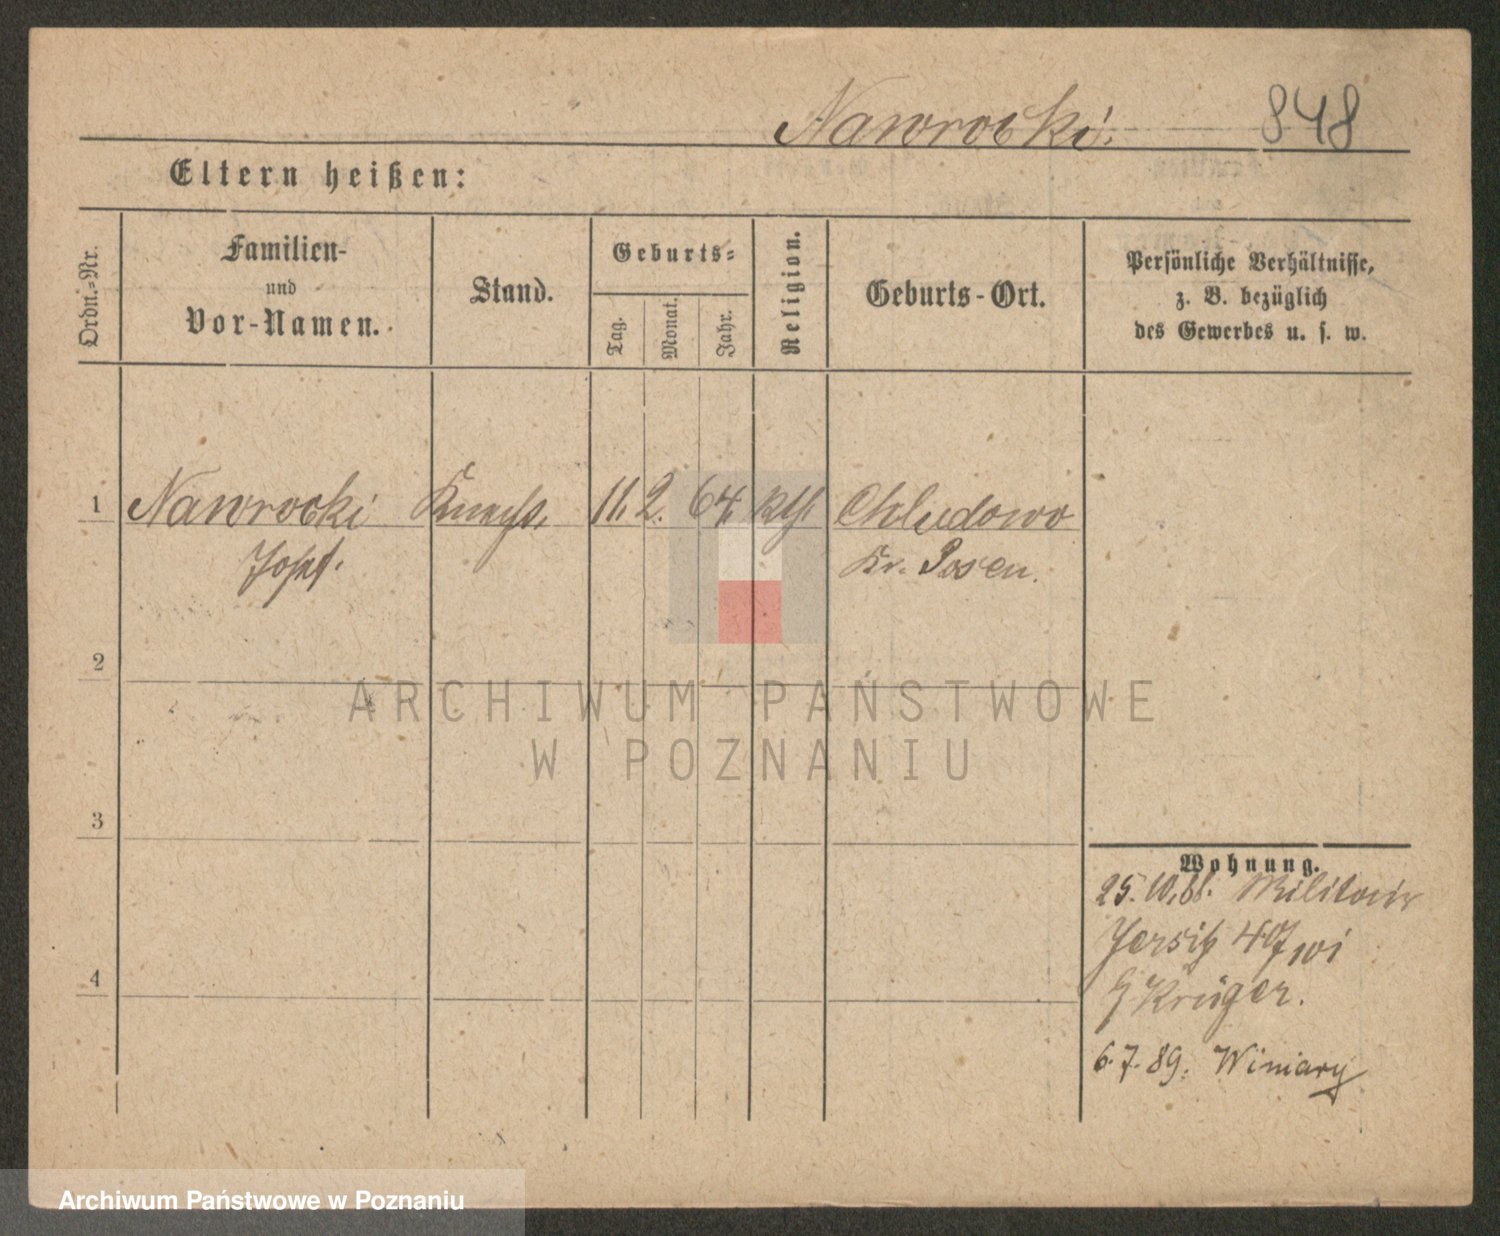 Nawrocki. 848
Eltern heißen:
Ordn.-Nr.
Familien-
und
Vor-Namen.
Stand.
Geburts-
Tag.
Monat.
Jahr.
Religion.
Geburts-Ort.
Persönliche Verhältnisse,
z. B. bezüglich
des Gewerbes u. s. w.
1 Nawrocki Knecht, 11. 2. 64 kth. Chludowo
Josef. Kr. Posen.
2
3
4
Wohnung.
25.10.88. Militair
Jersitz 40
Krüger.
6.7.89. Winiary
ARCHIWUM PAŃSTWOWE
W POZNANIU
Archiwum Państwowe w Poznaniu